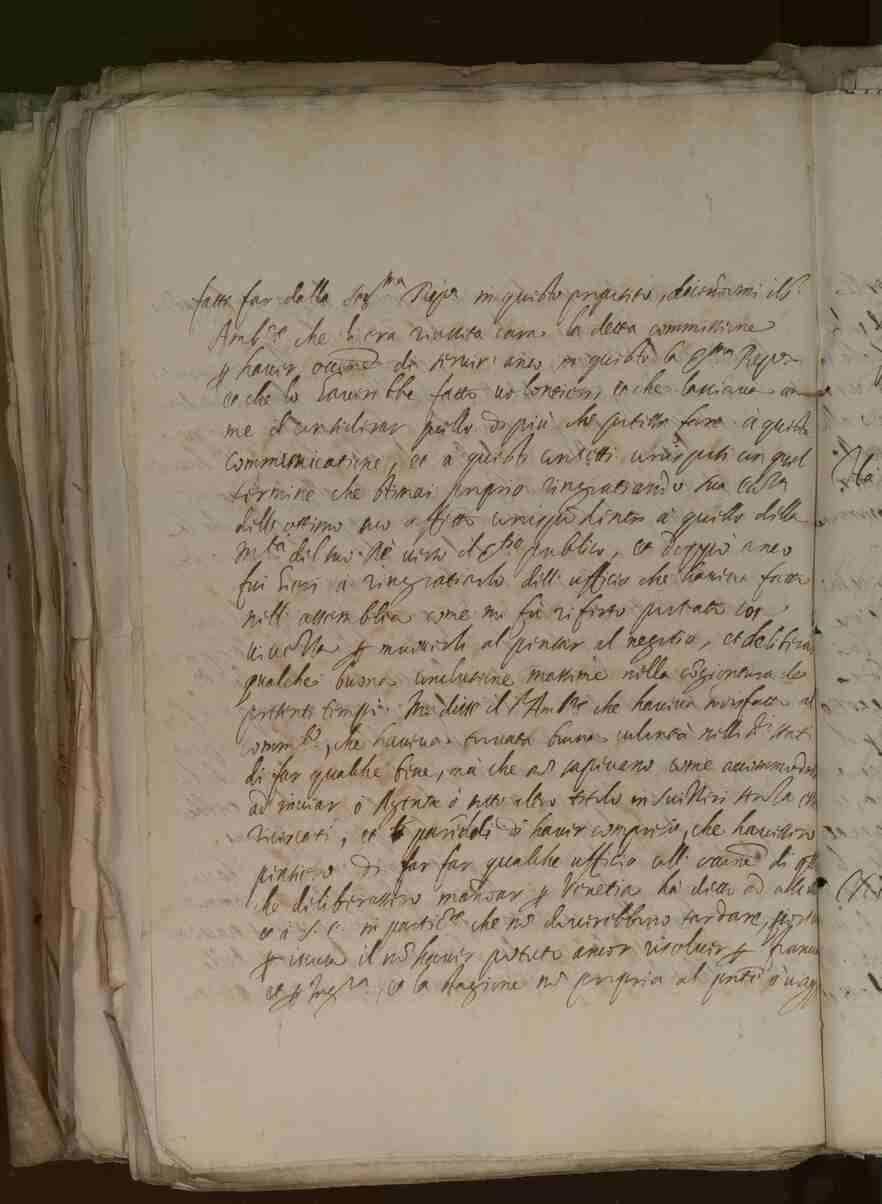 fatto far dalla Ser.ma Rep.ca in questo proposito, dicendomi il S.r
Amb.r che li era riuscita cara la detta commissione
p haver occ.ne di servir anco in questo la Ser.ma Rep.ca
et che lo haverebbe fatto volontieri, et che lasciava
me il considerar quello di più che potesse fare à questa
communicatione, et à questi concetti corrisposi con quel
termine che stimai proprio ringratiando sua
dell'ottimo suo affetto corrispondente à quello della
M.tà del suo Rè verso il publico, et doppò anco
fui hieri à ringratiarlo dell'ufficio che haveva fatto
nell'assemblea come mi fù riferto portato con
vivezza p muoverli al pensar al negotio, et deliberar
qualche buona conclusione massime nella congiontura de
presenti tempi. Mi disse il S.r Amb.r che haveva sodisfatto al
comm.to, che haveva trovata buona volontà nelli Stati
di far qualche bene, mà che nò sapevano come accommodarsi
ad inviar ò Agente ò sotto altro titolo in Suizzeri senza esser
ricercati, et parendoli di haver compreso, che havessero
pensiero di far far qualche ufficio coll'occ.ne di
che deliberassero mandar p Venetia hà detto ad
et à S. E. in partic.re che nò doverebbero tardare,
p scusa il nò haver potuto ancor risolver p Francia
et p Ing.ra, et la stagione nò propria al